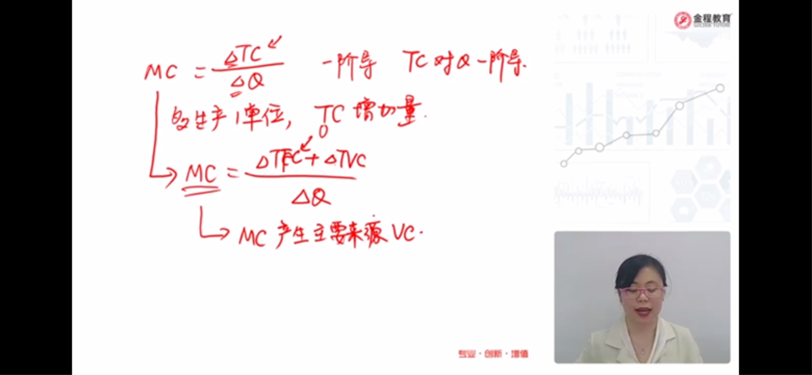 金程教育
GOLDEN FUTURE
MC = ΔTC / ΔQ 一阶导 TC对Q一阶导.
多生产1单位, TC增加量.
0
MC = ΔTFC + ΔTVC / ΔQ
MC产生主要来源VC.
专业·创新·增值